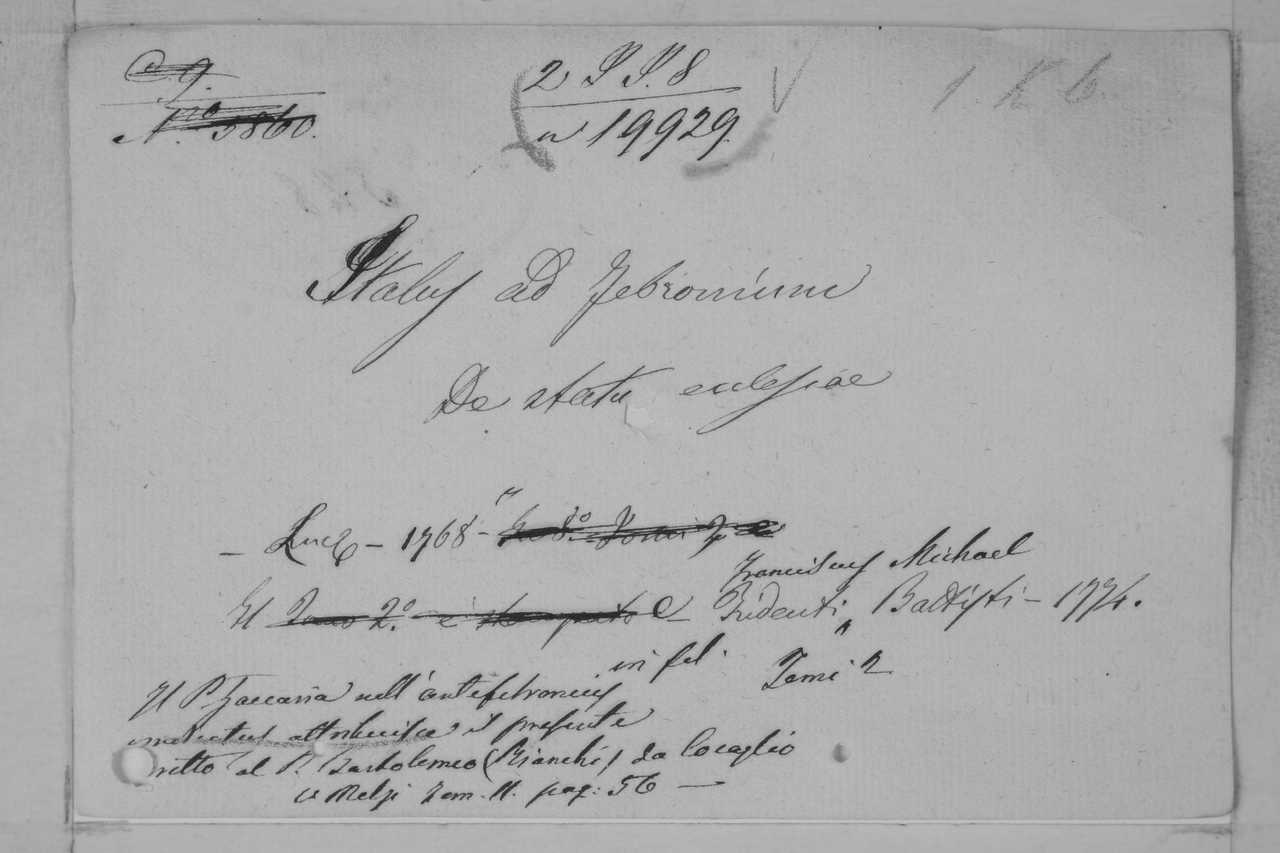 C. 9.
N.ro 3860.
2 S S. 8
n 19929.
1. K 6.
Italus ad Febronium
De statu eclesiae
– Lucæ – 1768 – In 8.o Tomi 2 e
Franciscus Michael
Il Tomo 2.o è stampato e – Tridenti, Battisti – 1774.
in fol. Tomi 2
Il P. Zaccaria nell'antifebronius
vindicatus attribuisce il presente
scritto al P. Bartolomeo (Bianchi) da Cocaglio
V. Melzi Tom. II. pag: 56 —